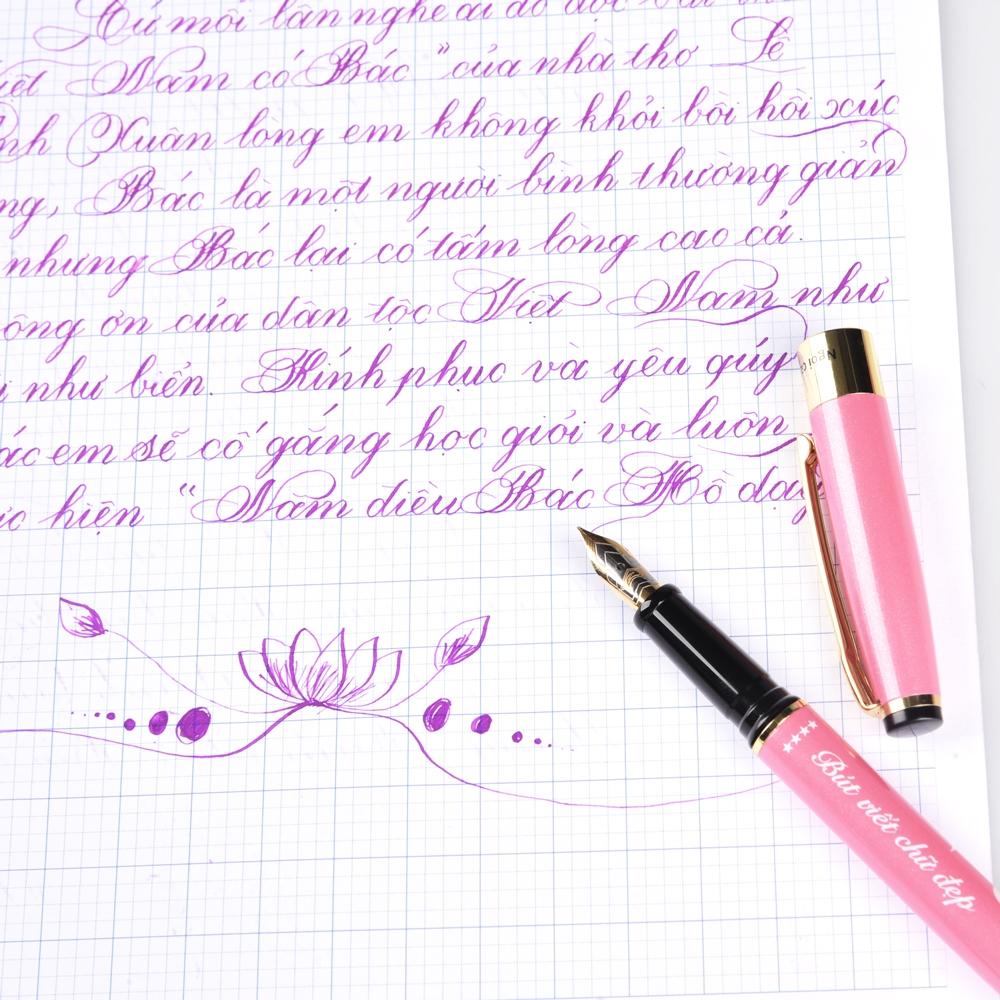 Cứ mỗi lần nghe ai đó đọc bài
Việt Nam có Bác" của nhà thơ Lê
Xuân lòng em không khỏi bồi hồi xúc
Bác là một người bình thường giản
nhưng Bác lại có tấm lòng cao cả.
ông ơn của dân tộc Việt Nam như
như biển. Kính phục và yêu quý
ác em sẽ cố gắng học giỏi và luôn
hiện "Năm điều Bác Hồ dạy
Ngòi
Bút viết chữ đẹp